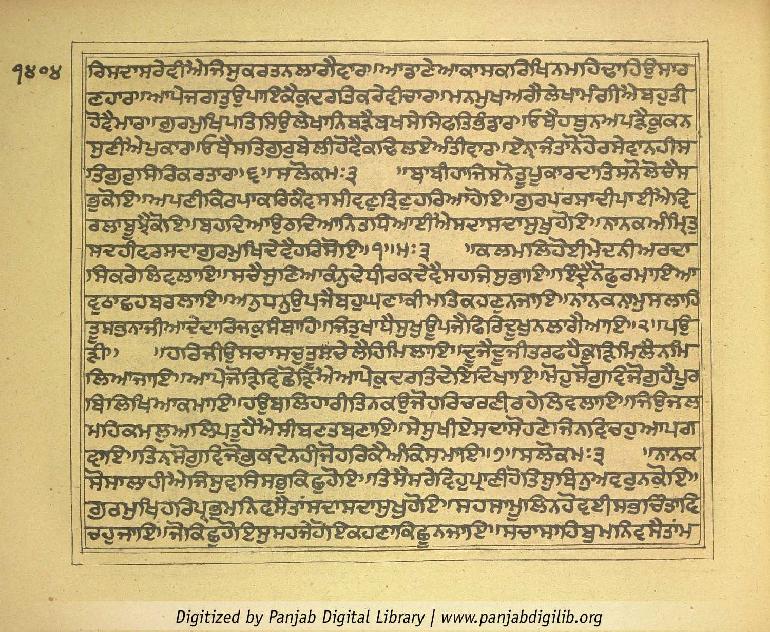 ੧੪੦੪
ਰਿਸਦਾਸਰੇਵੀਐਜਿਸੁਕਰਤਨਲਾਗੈਵਾਰਾ॥ਆਡਾਣੇਆਕਾਸਕਰਿਖਿਨਮਹਿਢਾਹਿਉਸਾਰ
ਣਹਾਰਾ॥ਆਪੇਜਗਤੁਉਪਾਇਕੈਕੁਦਰਤਿਕਰੇਵੀਚਾਰਾ॥ਮਨਮੁਖਅਗੈਲੇਖਾਮੰਗੀਐਬਹੁਤੀ
ਹੋਵੈਮਾਰਾ॥ਗੁਰਮੁਖਿਪਤਿਸਿਉਲੇਖਾਨਿਬੜੈਬਖਸੇਸਿਫਤਿਭੰਡਾਰਾ॥ਓਥੈਹਥੁਨਅਪੜੈਕੂਕਨ
ਸੁਣੀਐਪੁਕਾਰਾ॥ਓਥੈਸਤਿਗੁਰੁਬੇਲੀਹੋਵੈਕਢਿਲਏਅੰਤੀਵਾਰਾ॥ਏਨਾਜੰਤਾਨੋਹੋਰਸੇਵਾਨਹੀਸ
ਤਿਗੁਰੁਸਿਰਿਕਰਤਾਰਾ॥੬॥ਸਲੋਕਮਃ੩ ॥ਬਾਬੀਹਾਜਿਸਨੋਤੂਪੂਕਾਰਦਾਤਿਸਨੋਲੋਚੈਸ
ਭੁਕੋਇ॥ਅਪਣੀਕਿਰਪਾਕਰਿਕੈਵਸਸੀਵਣੁਤ੍ਰਿਣੁਹਰਿਆਹੋਇ॥ਗੁਰਪਰਸਾਦੀਪਾਈਐਵਿ
ਰਲਾਬੂਝੈਕੋਇ॥ਬਹਦਿਆਉਠਦਿਆਨਿਤਧਿਆਈਐਸਦਾਸਦਾਸੁਖੁਹੋਇ॥ਨਾਨਕਅੰਮ੍ਰਿਤੁ
ਸਦਹੀਵਰਸਦਾਗੁਰਮੁਖਿਦੇਵੈਹਰਿਸੋਇ॥੧॥ਮਃ੩ ॥ਕਲਮਲਿਹੋਈਮੇਦਨੀਅਰਦਾ
ਸਿਕਰੇਲਿਵਲਾਇ॥ਸਚੈਸੁਣਿਆਕੰਨੁਦੇਧੀਰਕਦੇਵੈਸਹਜਿਸੁਭਾਇ॥ਇੰਦ੍ਰੈਨੋਫੁਰਮਾਇਆ
ਵੁਠਾਛਹਬਰਲਾਇ॥ਅਨੁਧਨੁਉਪਜੈਬਹੁਘਣਾਕੀਮਤਿਕਹਣੁਨਜਾਇ॥ਨਾਨਕਨਾਮੁਸਲਾਹਿ
ਤੂਸਭਨਾਜੀਆਦੇਦਾਰਿਜਕੁਸੰਬਾਹਿ॥ਜਿਤੁਖਾਧੈਸੁਖੁਊਪਜੈਫਿਰਿਦੂਖੁਨਲਾਗੈਆਇ॥੨॥ਪਉ
ੜੀ॥ ॥ਹਰਿਜੀਉਸਚਾਸਚੁਤੂਸਚੇਲੈਹਿਮਿਲਾਇ॥ਦੂਜੈਦੂਜੀਤਰਫਹੈਕੂੜਿਮਿਲੈਨਮਿ
ਲਿਆਜਾਇ॥ਆਪੇਜੋੜਿਵਿਛੋੜਿਐਆਪੇਕੁਦਰਤਿਦੇਇਦਿਖਾਇ॥ਮੋਹੁਸੋਗੁਵਿਜੋਗੁਹੈਪੂਰ
ਬਿਲਿਖਿਆਕਮਾਇ॥ਹਉਬਲਿਹਾਰੀਤਿਨਕਉਜੋਹਰਿਚਰਣੀਰਹੈਲਿਵਲਾਇ॥ਜਿਉਜਲ
ਮਹਿਕਮਲੁਅਲਿਪਤੁਹੈਐਸੀਬਣਤਬਣਾਇ॥ਸੇਸੁਖੀਏਸਦਾਸੋਹਣੇਜਿਨਵਿਚਹੁਆਪੁਗ
ਵਾਇ॥ਤਿਨਸੋਗੁਵਿਜੋਗੁਕਦੇਨਹੀਜੋਹਰਿਕੈਅੰਕਿਸਮਾਇ॥੭॥ਸਲੋਕਮਃ੩ ॥ਨਾਨਕ
ਸੋਸਾਲਾਹੀਐਜਿਸੁਵਸਿਸਭੁਕਿਛੁਹੋਇ॥ਤਿਸੈਸਰੇਵਿਹੁਪ੍ਰਾਣੀਹੋਤਿਸੁਬਿਨੁਅਵਰੁਨਕੋਇ॥
ਗੁਰਮੁਖਿਹਰਿਪ੍ਰਭੁਮਨਿਵਸੈਤਾਂਸਦਾਸਦਾਸੁਖੁਹੋਇ॥ਸਹਸਾਮੂਲਿਨਹੋਵਈਸਭਚਿੰਤਾਵਿ
ਚਹੁਜਾਇ॥ਜੋਕਿਛੁਹੋਇਸੁਸਹਜੇਹੋਇਕਹਣਾਕਿਛੂਨਜਾਇ॥ਸਚਾਸਾਹਿਬੁਮਨਿਵਸੈਤਾਂਮ
Digitized by Panjab Digital Library | www.panjabdigilib.org